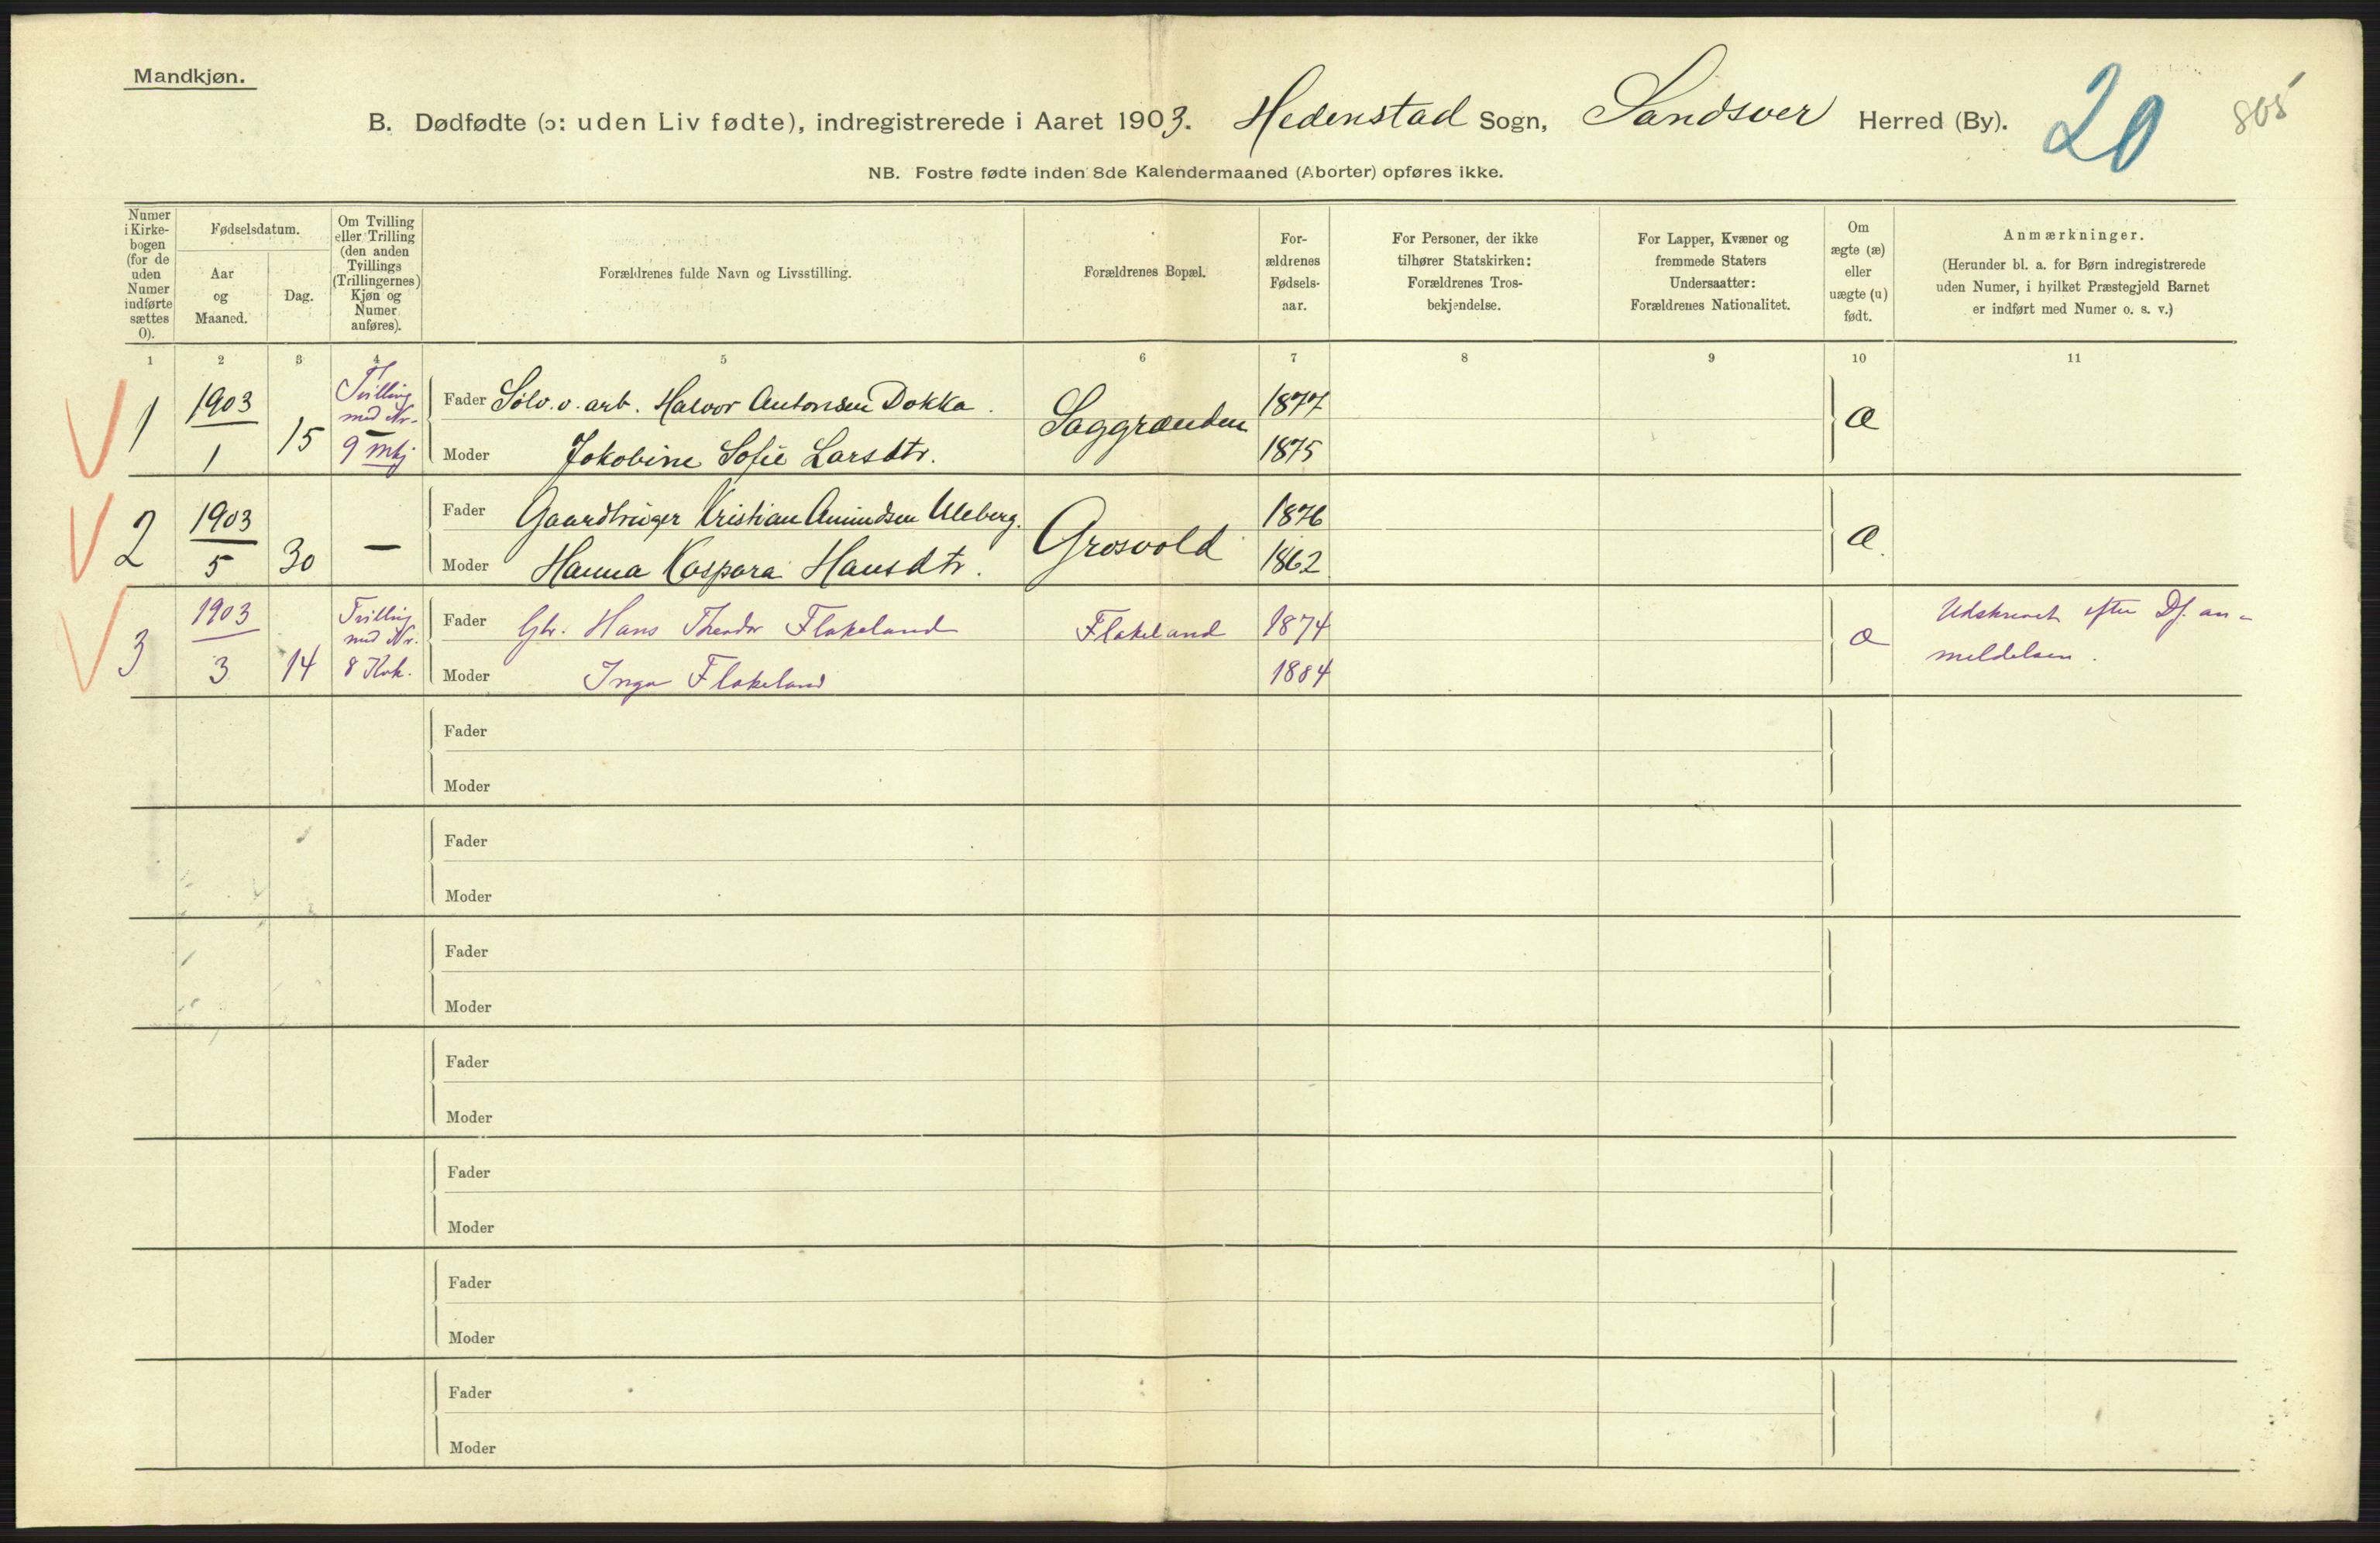 Mandkjøn.
B. Dødfødte (ɔ: uden Liv fødte), indregistrerede i Aaret 1903. Hedenstad Sogn, Sandsver Herred (By). 20 805
NB. Fostre fødte inden 8de Kalendermaaned (Aborter) opføres ikke.
Numer i Kirke-bogen (for de uden Numer indførte sættes 0).
Fødselsdatum.
Aar og Maaned.
Dag.
Om Tvilling eller Trilling (den anden Tvillings (Trillingernes) Kjøn og Numer anføres).
Forældrenes fulde Navn og Livsstilling.
Forældrenes Bopæl.
For-ældrenes Fødsels-aar.
For Personer, der ikke tilhører Statskirken: Forældrenes Tros-bekjendelse.
For Lapper, Kvæner og fremmede Staters Undersaatter: Forældrenes Nationalitet.
Om ægte (æ) eller uægte (u) født.
Anmærkninger.
(Herunder bl. a. for Børn indregistrerede uden Numer, i hvilket Præstegjeld Barnet er indført med Numer o. s. v.)
1 2 3 4 5 6 7 8 9 10 11
1 1903 1 15 Tvilling med Nr. 9 Mkj
Fader Sølv. v. arb. Halvor Antonsen Dokka. Saggrænden 1877 æ
Moder Jokobine Sofie Larsdtr. 1875
2 1903 5 30 —
Fader Gaardbruger Kristian Amundsen Uleberg. Grosvold 1876 æ.
Moder Hanna Kaspara Hansdtr. 1862
3 1903 3 14 Tvilling med Nr. 8 Kvk.
Fader Gbr. Hans Theodor Flakeland Flakeland 1874 æ Udskrevet efter Df. an-
Moder Inga Flakeland 1884 meldelsen.
Fader
Moder
Fader
Moder
Fader
Moder
Fader
Moder
Fader
Moder
Fader
Moder
Fader
Moder